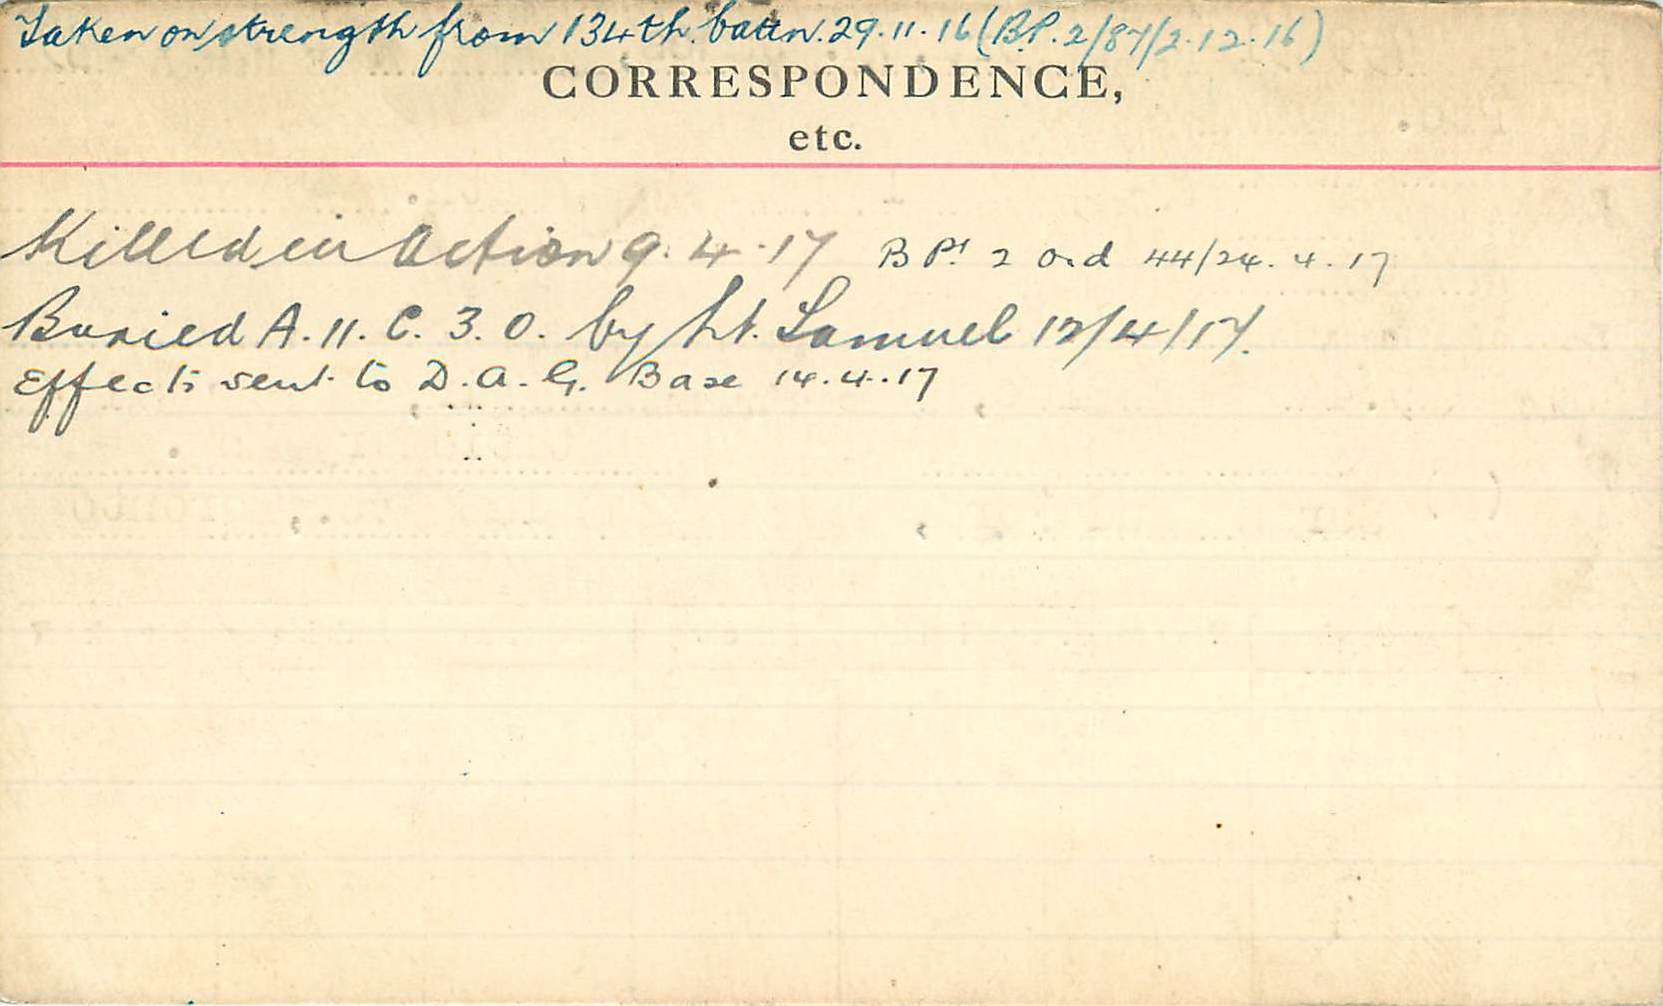 Taken on strength from 134th. battn. 29.11.16 (B.P. 2/87/2.12.16)
CORRESPONDENCE,
etc.
Killed in Action 9.4.17 B Pt 2 Ord 44/24.4.17
Buried A.11.C.3.0. by Lt. Samuel 12/4/17.
Effects sent to D.A.G. Base 14.4.17